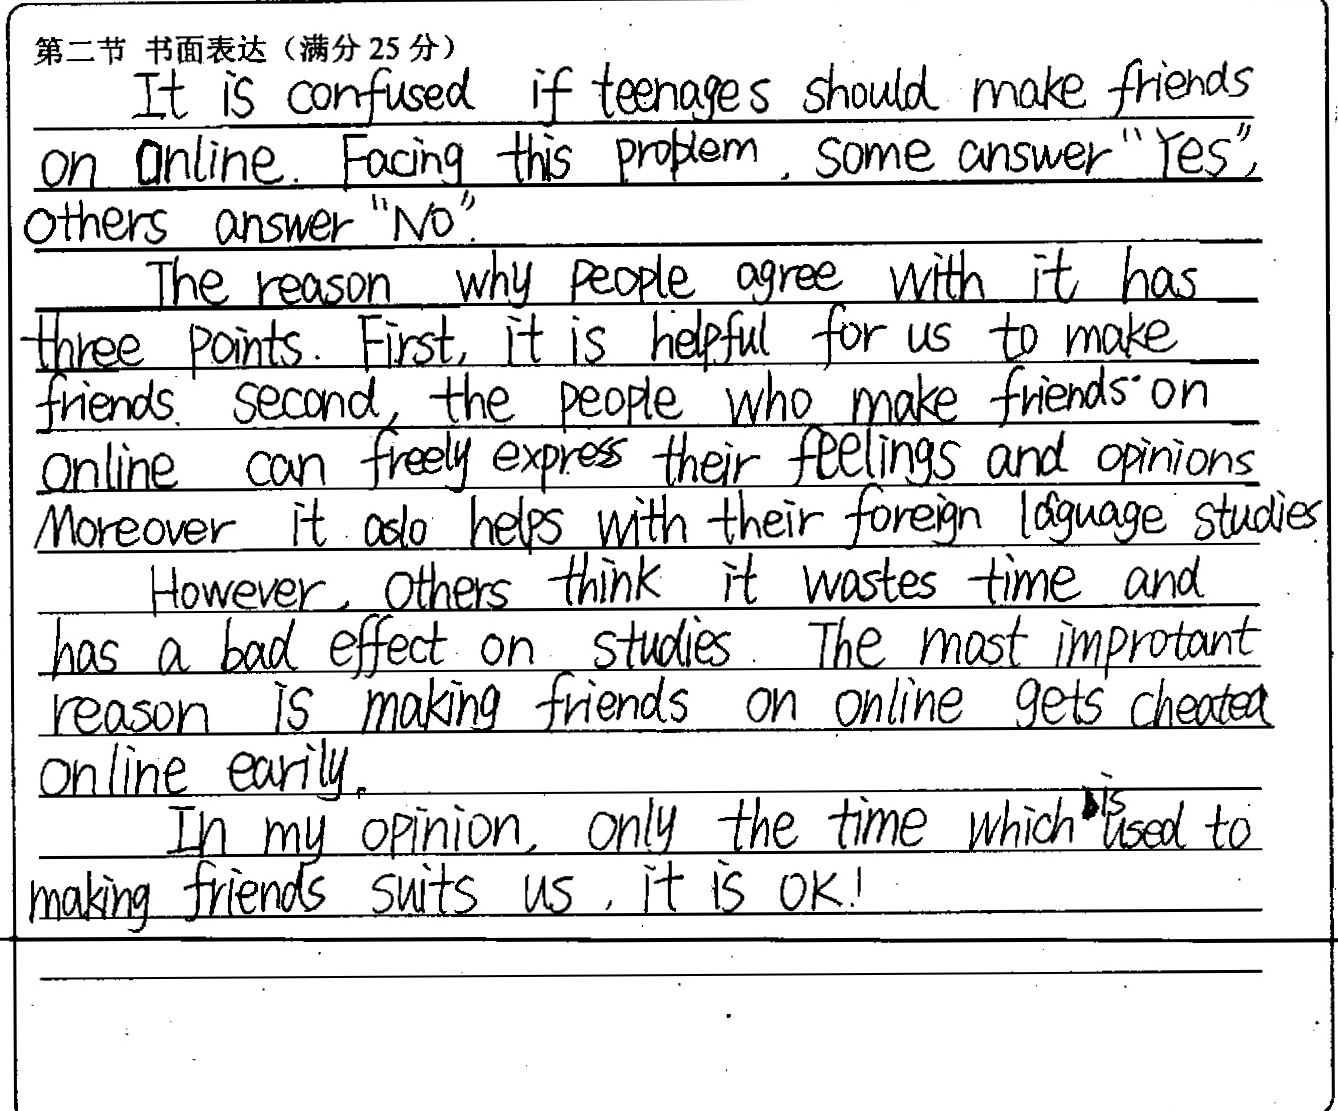 第二节 书面表达（满分 25 分）
It is confused if teenages should make friends
on online. Facing this problem, some answer "Yes",
others answer "No".
The reason why people agree with it has
three points. First, it is helpful for us to make
friends. second, the people who make friends on
online can freely express their feelings and opinions
Moreover it aslo helps with their foreign laguage studies.
However, others think it wastes time and
has a bad effect on studies. The most improtant
reason is making friends on online gets cheated
online earily.
In my opinion, only the time which is used to
making friends suits us, it is OK!